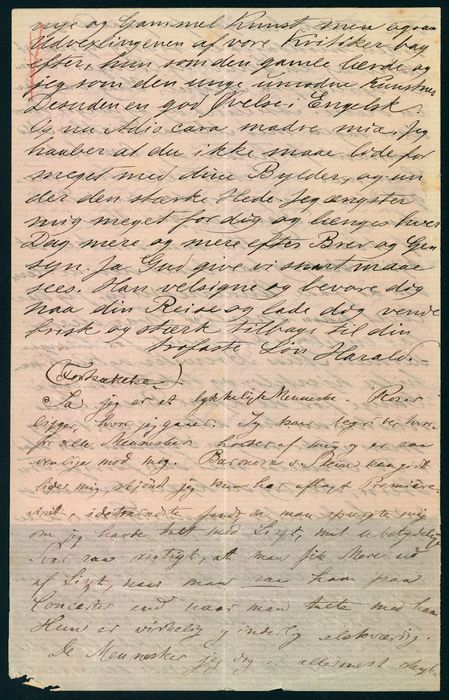 nye og Gammel Kunst, men ogsaa
Udvexlingenen af vore Kritiker bag
efter, hun som den gamle lærde og
jeg som den unge umodne Kunstner
Desuden en god Øvelse i Engelsk.
Og nu Adio cara madre mia. Jeg
haaber at du ikke maae lide for
meget med dine Bylder, og un
der den stærke Hede. Jeg ængster
mig meget for dig og længes hver
Dag mere og mere efter Brev og Gen
syn. Ja Gud give vi snart maae
sees. Han velsigne og bevare dig
paa din Reise og lade dig vende
frisk og stærk tilbage til din
trofaste Søn Harald.
(Fortsættelse.)
Ja, jeg er et lykkeligt Menneske. Roser
ligger, hvor jeg gaaer. Jeg kan
for alle Mennesker holder af mig og er saa
venlige mod mig. Baronesse v.
lider mig, skjøndt jeg kun har aflagt Premiere-
visit, man spurgte mig
om jeg havde talt med Liszt,
var saa vigtigt, at man fik Mere ud
af Liszt, naar man saa ham paa
Concerter end naar man talte med ham
Hun er virkelig inderlig elskværdig.
De Mennesker jeg dog er allermest